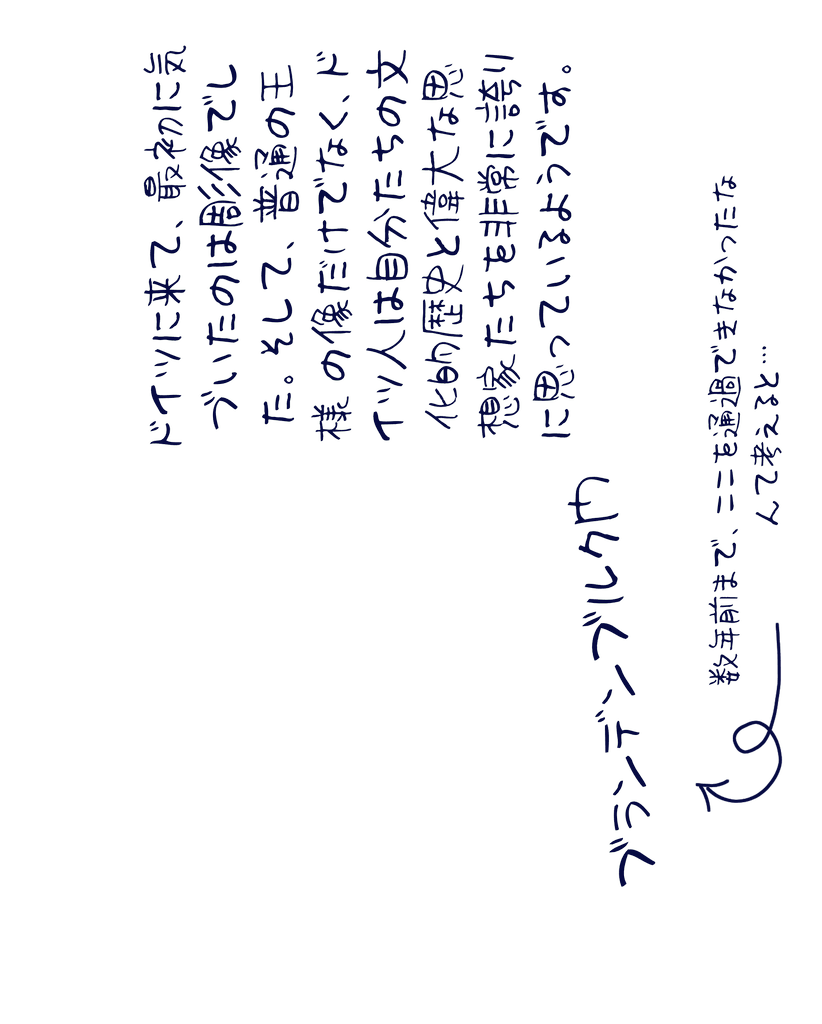 ドイツに来て、最初に気
づいたのは彫像でし
た。そして、普通の王
様の像だけでなく、ド
イツ人は自分たちの文
化的歴史と偉大な思
想家たちを非常に誇り
に思っているようです。
ブランデンブルク門
数年前まで、ここを通過できなかったな
んて考えると…